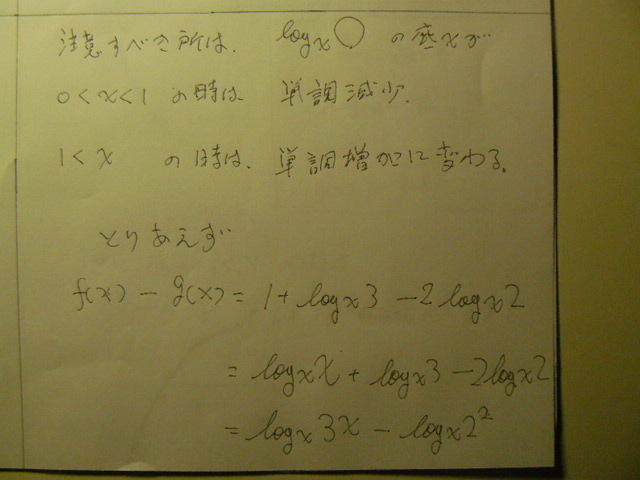 注意すべき所は、 logx○ の底xが
0<x<1 の時は 単調減少.
1<x の時は、単調増加に変わる。
とりあえず
f(x) − g(x) = 1 + logx3 − 2logx2
= logxx + logx3 − 2logx2
= logx3x − logx2²